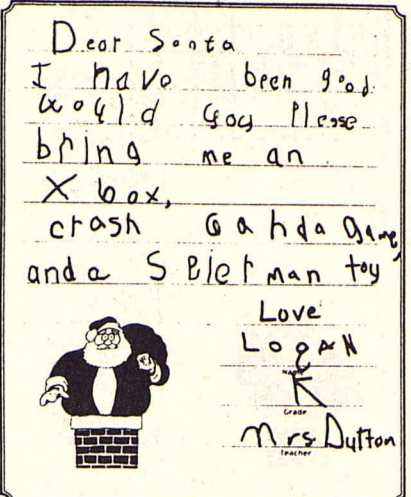 Dear Santa
I have been good
would you Please
bring me an
X box,
crash Ganda game,
and a SPierman toy
Love
LOgAN
Name
K
Grade
Mrs Dutton
Teacher